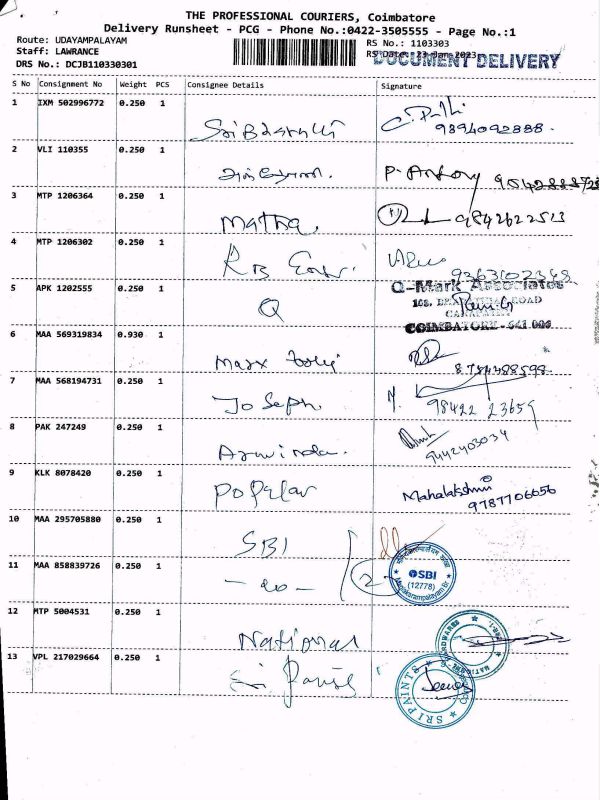 THE PROFESSIONAL COURIERS, Coimbatore
Delivery Runsheet - PCG - Phone No.:0422-3505555 - Page No.:1
Route: UDAYAMPALAYAM
Staff: LAWRANCE
DRS No.: DCJB110330301
RS No.: 1103303
RS Date: 23-Jan-2023
DOCUMENT DELIVERY
S No Consignment No Weight PCS Consignee Details Signature
1 IXM 502996772 0.250 1
9894092888
2 VLI 110355 0.250 1 P. Antony
3 MTP 1206364 0.250 1 Matha 9842622513
4 MTP 1206302 0.250 1
5 APK 1202555 0.250 1 Q Q-Mark Associates
COIMBATORE - 641 006
6 MAA 569319834 0.930 1
8754488598
7 MAA 568194731 0.250 1 Joseph 98422 23659
8 PAK 247249 0.250 1
9442403034
9 KLK 8078420 0.250 1 Popular Mahalakshmi
9787706656
10 MAA 295705880 0.250 1 SBI
11 MAA 858839726 0.250 1 - 20 - 2 SBI
(12778)
12 MTP 5004531 0.250 1 National
13 VPL 217029664 0.250 1
SRI PAINTS